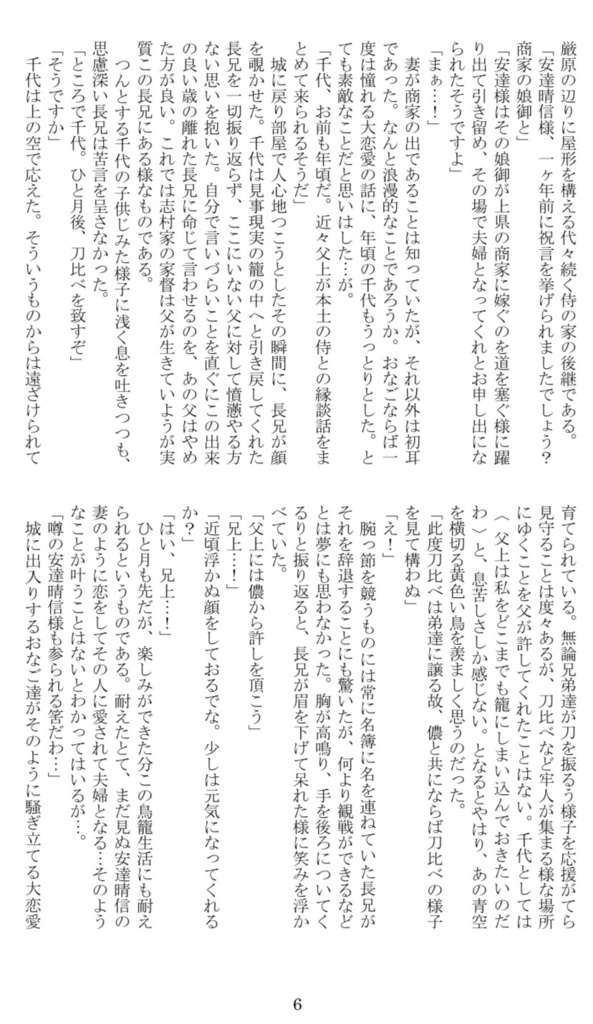 厳原の辺りに屋形を構える代々続く侍の家の後継である。
「安達晴信様、一ヶ年前に祝言を挙げられましたでしょう？
商家の娘御と」
「安達様はその娘御が上県の商家に嫁ぐのを道を塞ぐ様に躍
り出て引き留め、その場で夫婦となってくれとお申し出にな
られたそうですよ」
「まぁ…！」
妻が商家の出であることは知っていたが、それ以外は初耳
であった。なんと浪漫的なことであろうか。おなごならば一
度は憧れる大恋愛の話に、年頃の千代もうっとりとした。と
ても素敵なことだと思いはした…が。
「千代、お前も年頃だ。近々父上が本土の侍との縁談話をま
とめて来られるそうだ」
城に戻り部屋で人心地つこうとしたその瞬間に、長兄が顔
を覗かせた。千代は見事現実の籠の中へと引き戻してくれた
長兄を一切振り返らず、ここにいない父に対して憤懣やる方
ない思いを抱いた。自分で言いづらいことを直ぐにこの出来
の良い歳の離れた長兄に命じて言わせるのを、あの父はやめ
た方が良い。これでは志村家の家督は父が生きていようが実
質この長兄にある様なものである。
つんとする千代の子供じみた様子に浅く息を吐きつつも、
思慮深い長兄は苦言を呈さなかった。
「ところで千代。ひと月後、刀比べを致すぞ」
「そうですか」
千代は上の空で応えた。そういうものからは遠ざけられて
育てられている。無論兄弟達が刀を振るう様子を応援がてら
見守ることは度々あるが、刀比べなど牢人が集まる様な場所
にゆくことを父が許してくれたことはない。千代としては
〈父上は私をどこまでも籠にしまい込んでおきたいのだ
わ〉と、息苦しさしか感じない。となるとやはり、あの青空
を横切る黄色い鳥を羨ましく思うのだった。
「此度刀比べは弟達に譲る故、儂と共にならば刀比べの様子
を見て構わぬ」
「え！」
腕っ節を競うものには常に名簿に名を連ねていた長兄が
それを辞退することにも驚いたが、何より観戦ができるなど
とは夢にも思わなかった。胸が高鳴り、手を後ろについてく
るりと振り返ると、長兄が眉を下げて呆れた様に笑みを浮か
べていた。
「父上には儂から許しを頂こう」
「兄上…！」
「近頃浮かぬ顔をしておるでな。少しは元気になってくれる
か？」
「はい、兄上…！」
ひと月も先だが、楽しみができた分この鳥籠生活にも耐え
られるというものである。耐えたとて、まだ見ぬ安達晴信の
妻のように恋をしてその人に愛されて夫婦となる…そのよう
なことが叶うことはないとわかってはいるが…。
「噂の安達晴信様も参られる筈だわ…」
城に出入りするおなご達がそのように騒ぎ立てる大恋愛
6